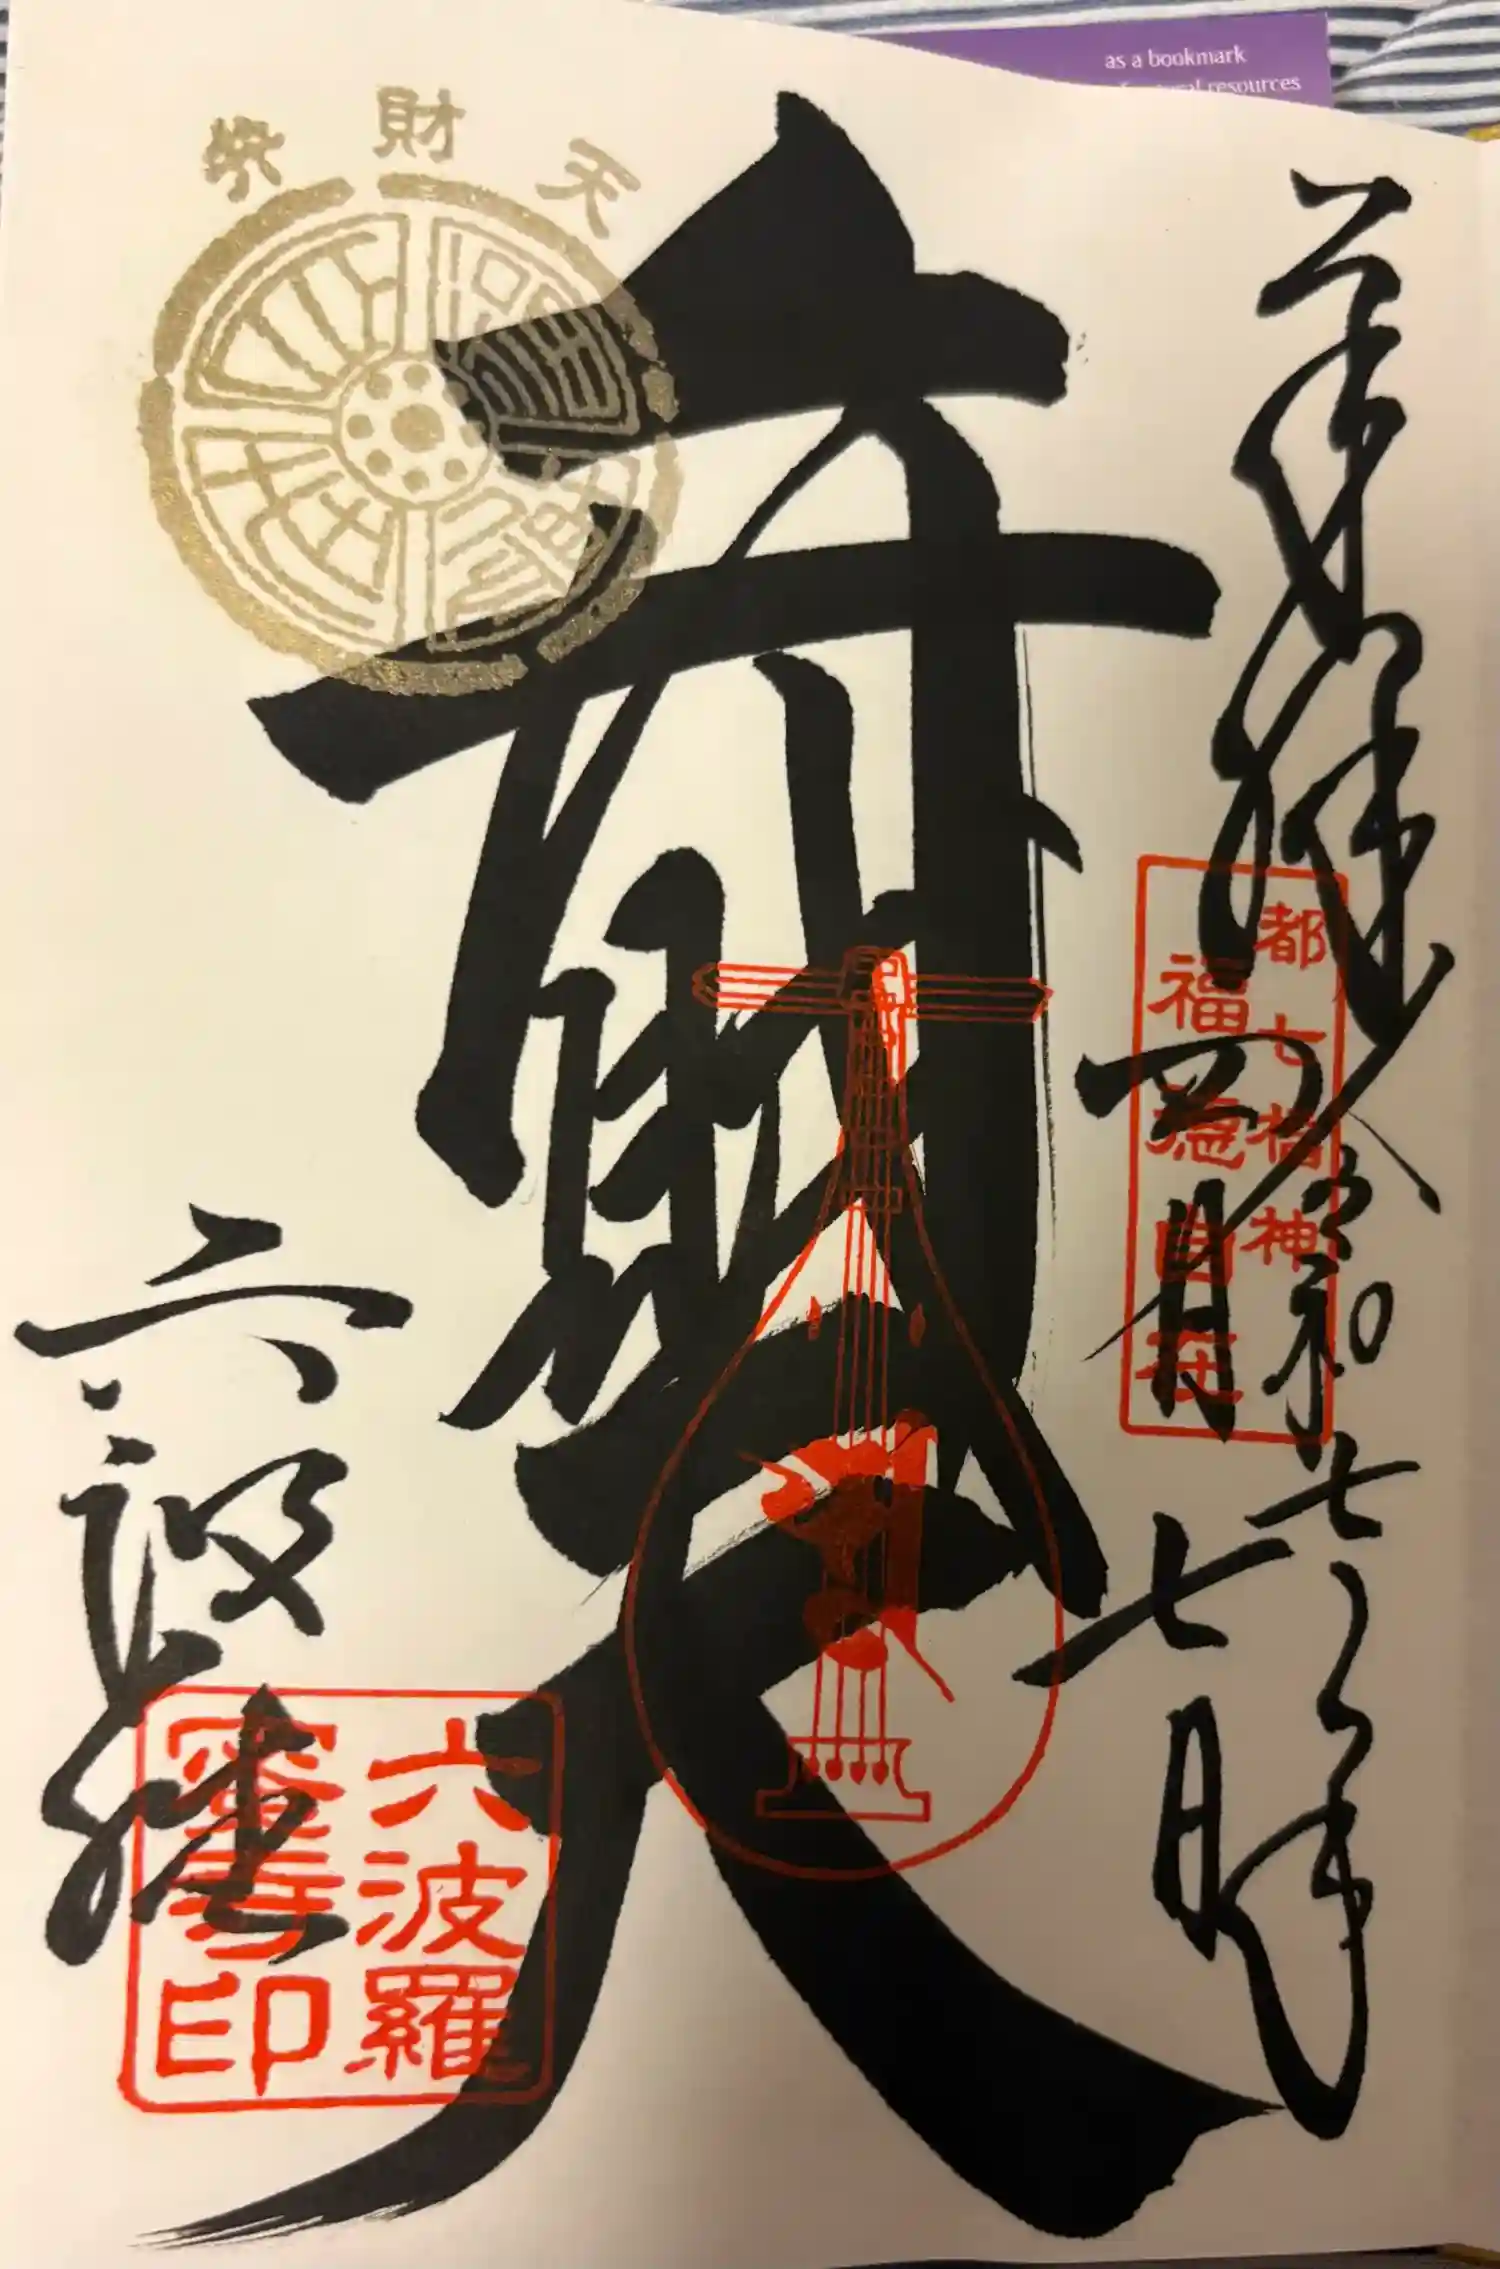 as a bookmark
resources
奉拝
令和七年
四月
七日
都七福神
福徳自在
弁財天
財
天
六波羅
六波羅
蜜寺印